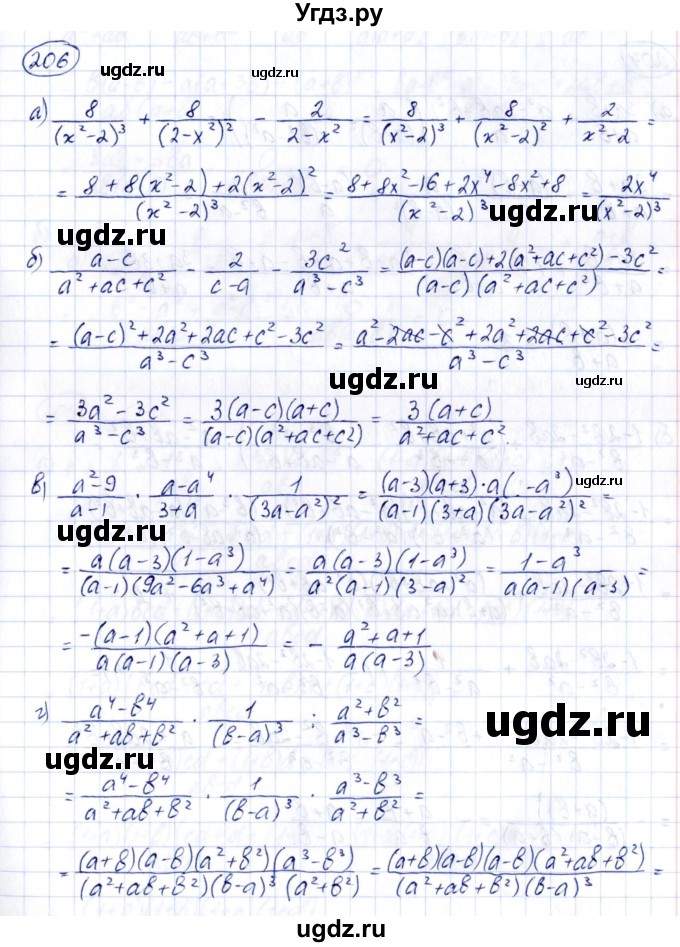 Угдз.ру
206
ugdz.ru ugdz.ru
а) 8/(x²-2)³ + 8/(2-x²)² - 2/(2-x²) = 8/(x²-2)³ + 8/(x²-2)² + 2/(x²-2) =
= (8+8(x²-2)+2(x²-2)²)/(x²-2)³ = (8+8x²-16+2x⁴-8x²+8)/(x²-2)³ = 2x⁴/(x²-2)³
ugdz.ru ugdz.ru
б) (a-c)/(a²+ac+c²) - 2/(c-a) - 3c²/(a³-c³) = ((a-c)(a-c)+2(a²+ac+c²)-3c²)/((a-c)(a²+ac+c²)) =
= ((a-c)²+2a²+2ac+c²-3c²)/(a³-c³) = (a²-2ac-c²+2a²+2ac+c²-3c²)/(a³-c³) =
ugdz.ru ugdz.ru
= (3a²-3c²)/(a³-c³) = 3(a-c)(a+c)/((a-c)(a²+ac+c²)) = 3(a+c)/(a²+ac+c²).
в) (a²-9)/(a-1) · (a-a⁴)/(3+a) · 1/(3a-a²)² = (a-3)(a+3)·a( -a³)/((a-1)(3+a)(3a-a²)²) =
ugdz.ru ugdz.ru
= a(a-3)(1-a³)/((a-1)(9a²-6a³+a⁴)) = a(a-3)(1-a³)/(a²(a-1)(3-a)²) = (1-a³)/(a(a-1)(a-3)) =
= -(a-1)(a²+a+1)/(a(a-1)(a-3)) = - (a²+a+1)/(a(a-3))
ugdz.ru ugdz.ru
г) (a⁴-b⁴)/(a²+ab+b²) · 1/(b-a)³ : (a²+b²)/(a³-b³) =
= (a⁴-b⁴)/(a²+ab+b²) · 1/(b-a)³ · (a³-b³)/(a²+b²) =
ugdz.ru ugdz.ru
= (a+b)(a-b)(a²+b²)(a³-b³)/((a²+ab+b²)(b-a)³(a²+b²)) = (a+b)(a-b)(a-b)(a²+ab+b²)/((a²+ab+b²)(b-a)³) =